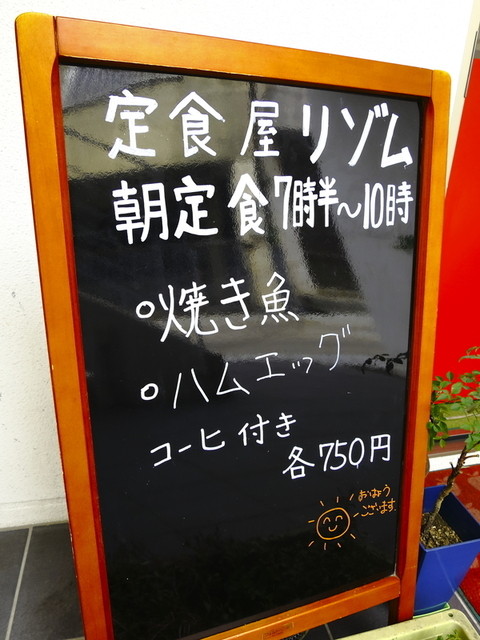 定食屋リゾム
朝定食7時半~10時
○焼き魚
○ハムエッグ
コーヒ付き
各750円
おはよう
ございます